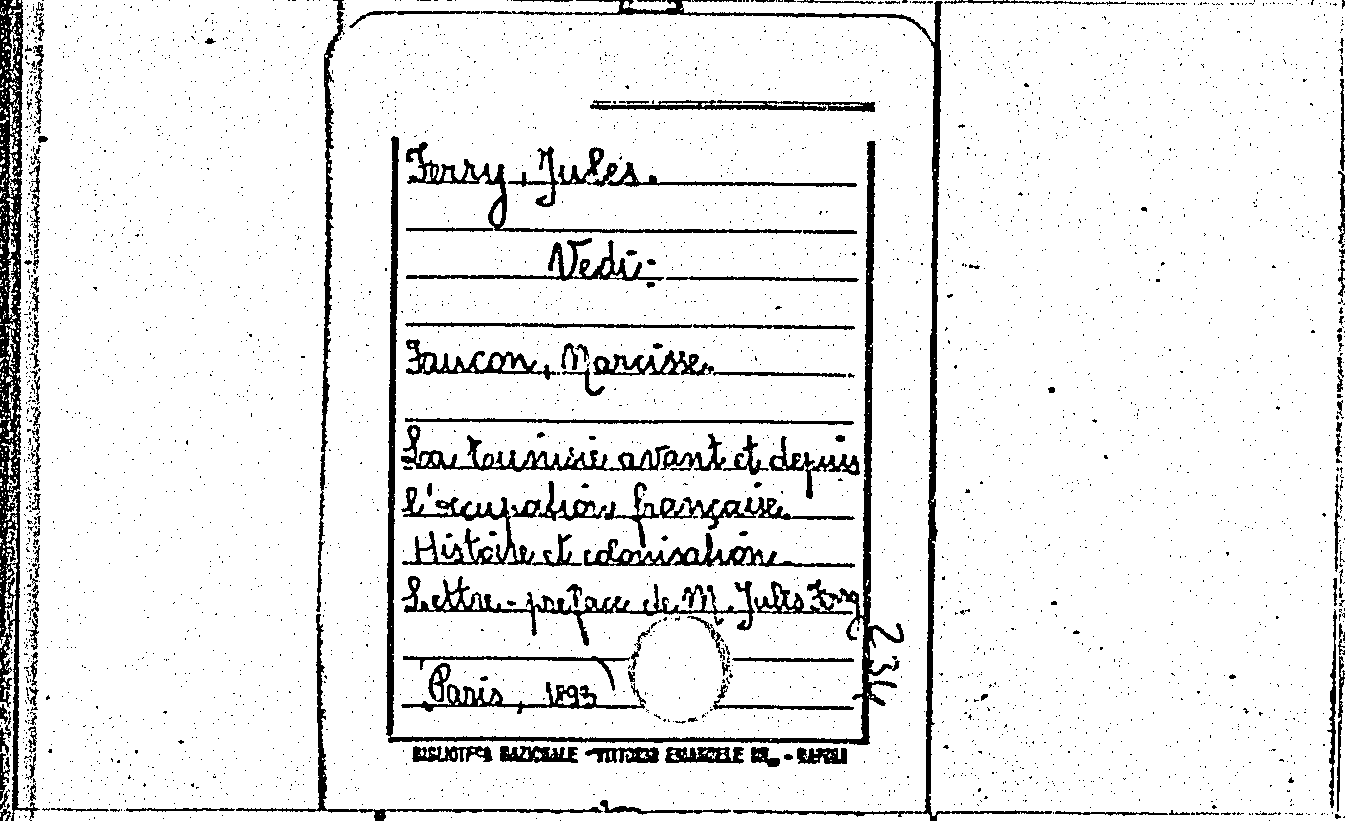 Ferry, Jules.
Vedi:
Faucon, Narcisse.
La tunisie avant et depuis
l'occupation française.
Histoire et colonisation.
Lettre-preface de M. Jules Ferry
Paris, 1893
234
BIBLIOTECA NAZIONALE - VITTORIO EMANUELE III - NAPOLI